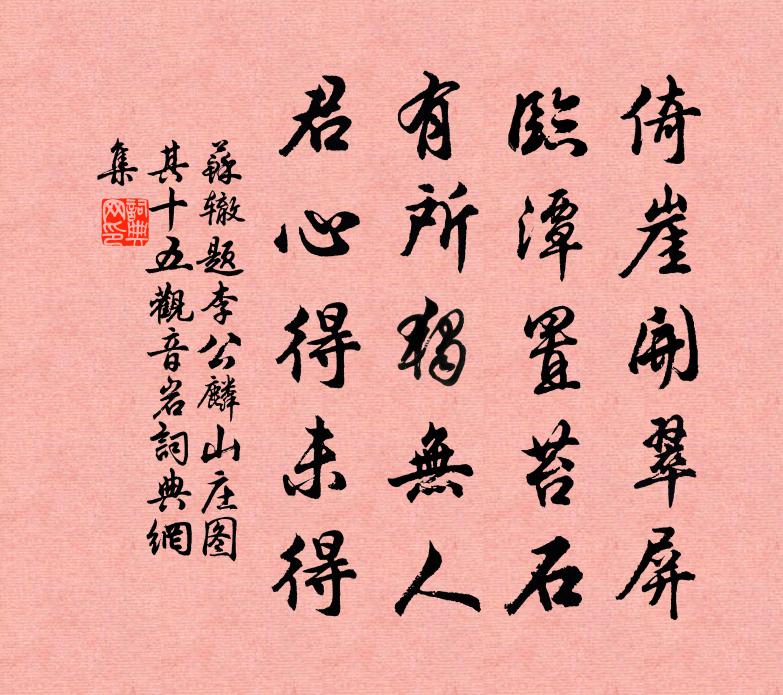 倚崖開翠屏
臨潭置苔石
有所獨無人
君心得未得
蘇辙题李公麟山庄图
其十五觀音岩詞典網
集
詞典網印